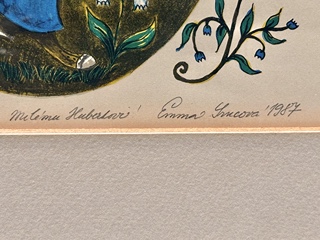 Milému Hubertovi! Emma Srncová 1987